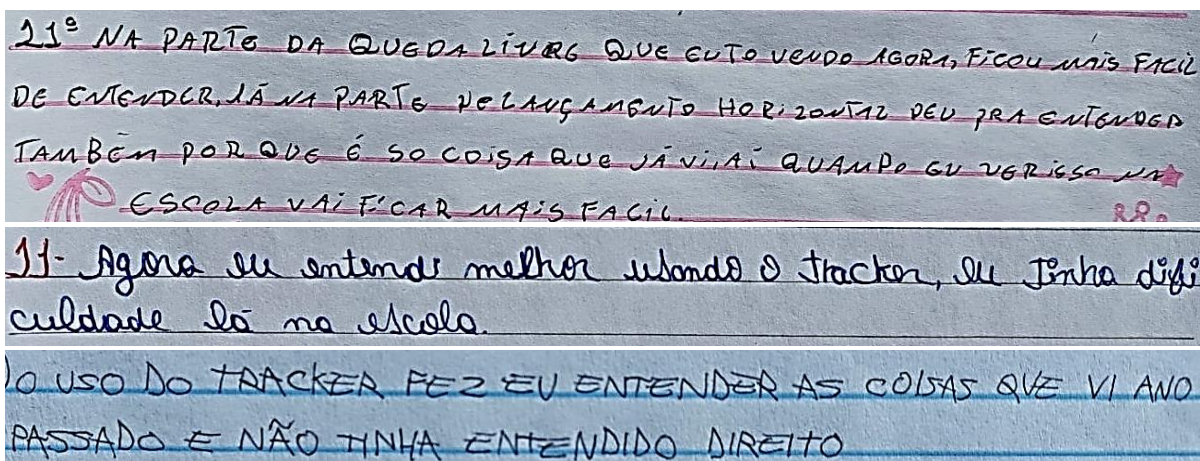 11º NA PARTE DA QUEDA LIVRE QUE EU TO VENDO AGORA, FICOU MAIS FACIL
DE ENTENDER, JÁ NA PARTE DE LANÇAMENTO HORIZONTAL DEU PRA ENTENDER
TAMBÉM POR QUE É SO COISA QUE JÁ VI, AÍ QUANDO EU VER ISSO NA
ESCOLA VAI FICAR MAIS FACIL.
11- Agora eu entendi melhor usando o tracker, eu tinha difi
culdade lá na escola.
O USO DO TRACKER FEZ EU ENTENDER AS COISAS QUE VI ANO
PASSADO E NÃO TINHA ENTENDIDO DIREITO